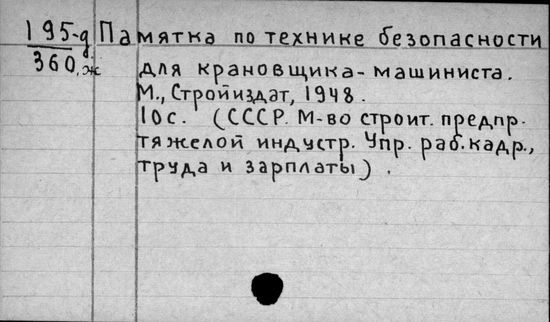 195-д Памятка по технике безопасности
360,ж для крановщика-машиниста.
М., Стройиздат, 1948.
10с. (СССР. М-во строит. предпр.
тяжелой индустр. Упр. раб. кадр.,
труда и зарплаты).